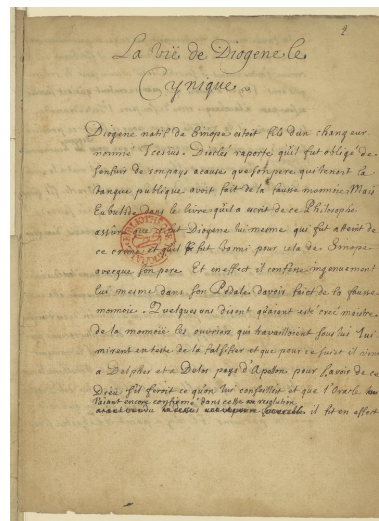 La vië de Diogene le
Cynique
Diogene natif de Sinope estoit fils d'un changeur
nommé Icesius. Dioclés raporte qu'il fut obligé de
s'enfuir de son pays a cause que son pere qui tenoit la
banque publique avoit fait de la fausse monnoie. Mais
Eubulide dans le livre qu'il a escrit de ce Philosophe
assure que ce fut Diogene lui mesme qui fut atteint de
ce crime et qu'il fut banni pour cela de Sinope
avecque son pere. Et en effect il confesse ingenuement
lui mesme dans son Podale d'avoir faict de la fausse
monnoie. Quelques uns disent qu'aiant esté creé maistre
de la monnoie les ouvriers qui travailloient sous lui lui
mirent en teste de la falsifier et que pour ce suiet il
a Delphes et a Delos pays d'Apollon pour sçavoir de ce
Dieu s'il feroit ce qu'on lui conseilloit et que l'Oracle
l'aiant encore confirmé dans cette resolution
il fit en effect